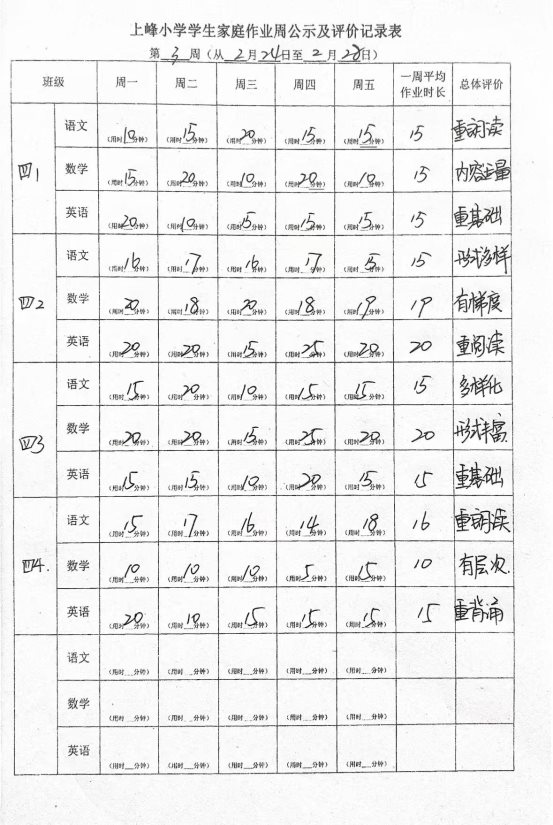 上峰小学学生家庭作业周公示及评价记录表
第 3 周（从 2 月 24 日至 2 月 28 日）
班级 周一 周二 周三 周四 周五 一周平均作业时长 总体评价
四1 语文 （用时10分钟） （用时15分钟） （用时20分钟） （用时15分钟） （用时15分钟） 15 重朗读
数学 （用时15分钟） （用时20分钟） （用时10分钟） （用时20分钟） （用时10分钟） 15 内容适量
英语 （用时20分钟） （用时10分钟） （用时15分钟） （用时15分钟） （用时15分钟） 15 重基础
四2 语文 （用时16分钟） （用时17分钟） （用时16分钟） （用时17分钟） （用时15分钟） 15 形式多样
数学 （用时20分钟） （用时18分钟） （用时20分钟） （用时18分钟） （用时19分钟） 19 有梯度
英语 （用时20分钟） （用时20分钟） （用时15分钟） （用时25分钟） （用时20分钟） 20 重阅读
四3 语文 （用时15分钟） （用时20分钟） （用时10分钟） （用时15分钟） （用时15分钟） 15 多样化
数学 （用时20分钟） （用时20分钟） （用时15分钟） （用时25分钟） （用时20分钟） 20 形式丰富
英语 （用时15分钟） （用时15分钟） （用时10分钟） （用时20分钟） （用时15分钟） 15 重基础
四4. 语文 （用时15分钟） （用时17分钟） （用时16分钟） （用时14分钟） （用时18分钟） 16 重朗读
数学 （用时10分钟） （用时10分钟） （用时10分钟） （用时5分钟） （用时15分钟） 10 有层次.
英语 （用时20分钟） （用时10分钟） （用时15分钟） （用时15分钟） （用时15分钟） 15 重背诵
语文 （用时__分钟） （用时__分钟） （用时__分钟） （用时__分钟） （用时__分钟）
数学 （用时__分钟） （用时__分钟） （用时__分钟） （用时__分钟） （用时__分钟）
英语 （用时__分钟） （用时__分钟） （用时__分钟） （用时__分钟） （用时__分钟）